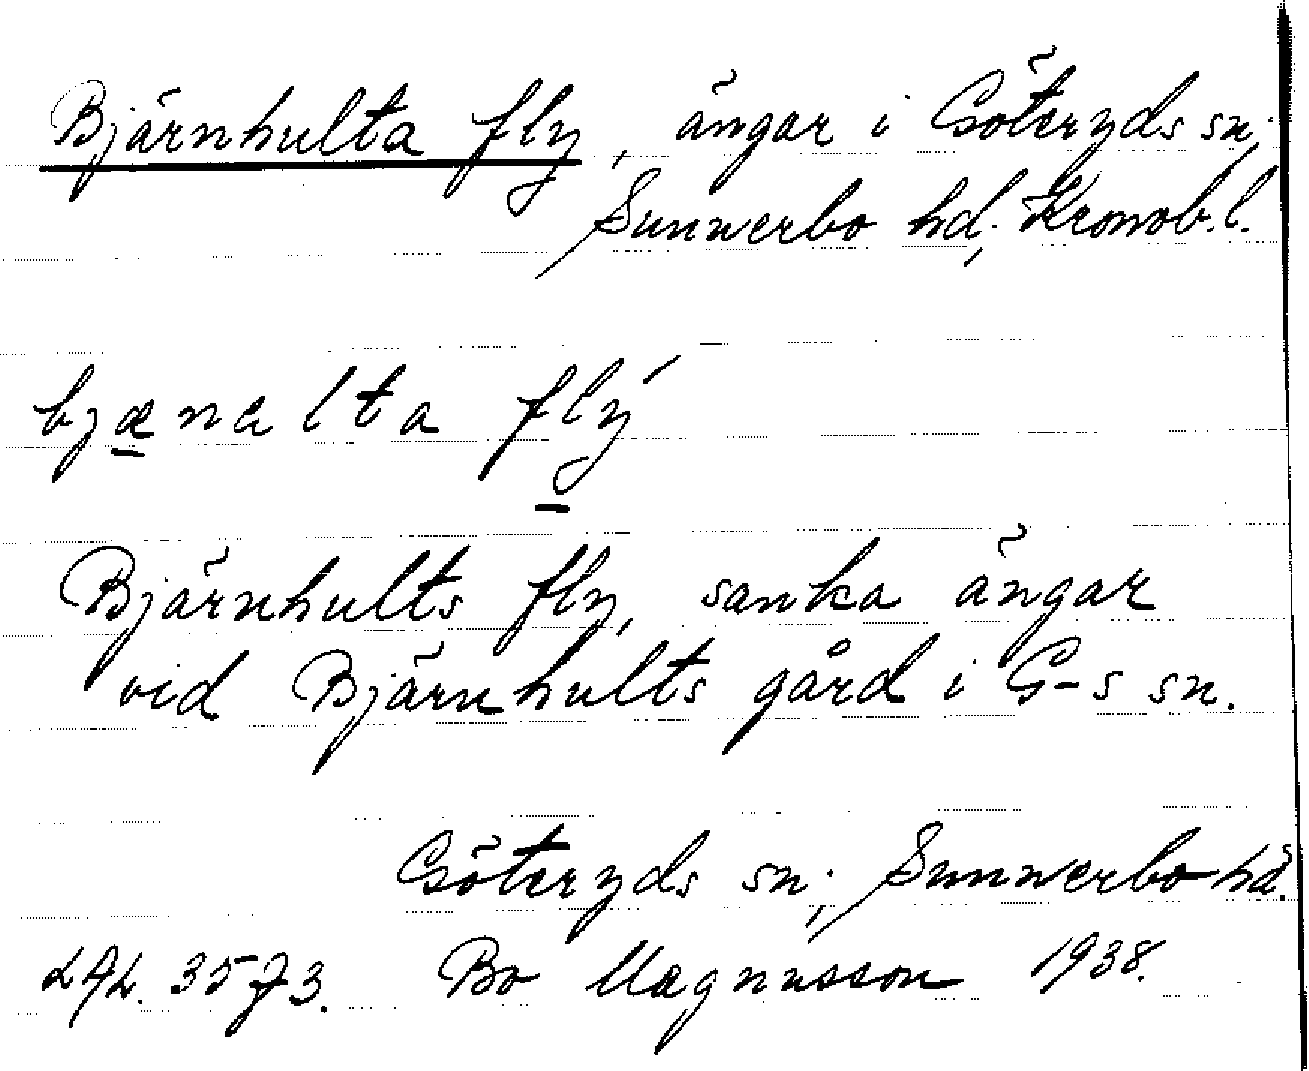 Bjärnhulta fly, ängar i Göteryds sn,
Sunnerbo hd, Kronob. l.
bjænalta flý
Bjärnhults fly, sanka ängar
vid Bjärnhults gård i G-s sn.
Göteryds sn., Sunnerbo hd.
LAL. 3573. Bo Magnusson 1938.